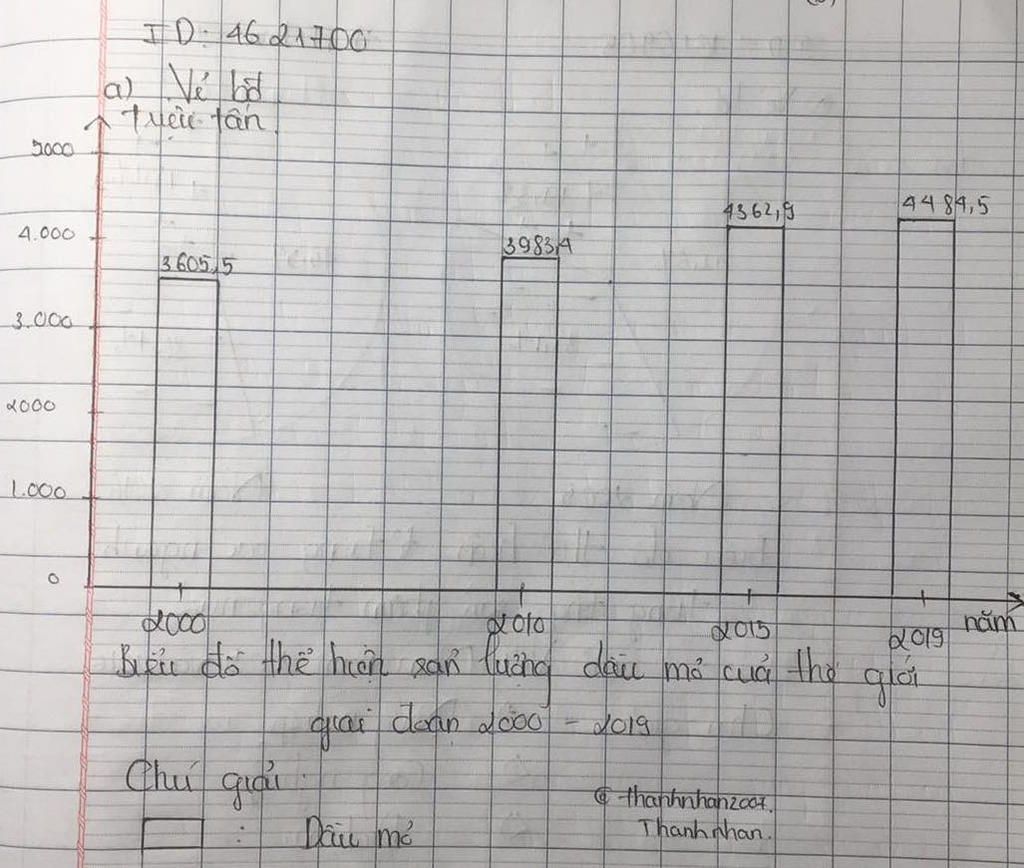 ID: 4621700
a) Vẽ bđ
triệu tấn
5000
4.000
3.000
2000
1.000
0
3605,5
3983,4
4362,9
4484,5
2000 2010 2015 2019 năm
Biểu đồ thể hiện sản lượng dầu mỏ của thế giới
giai đoạn 2000 - 2019
Chú giải:
: Dầu mỏ
© thanhnhan2007.
Thanh nhan.